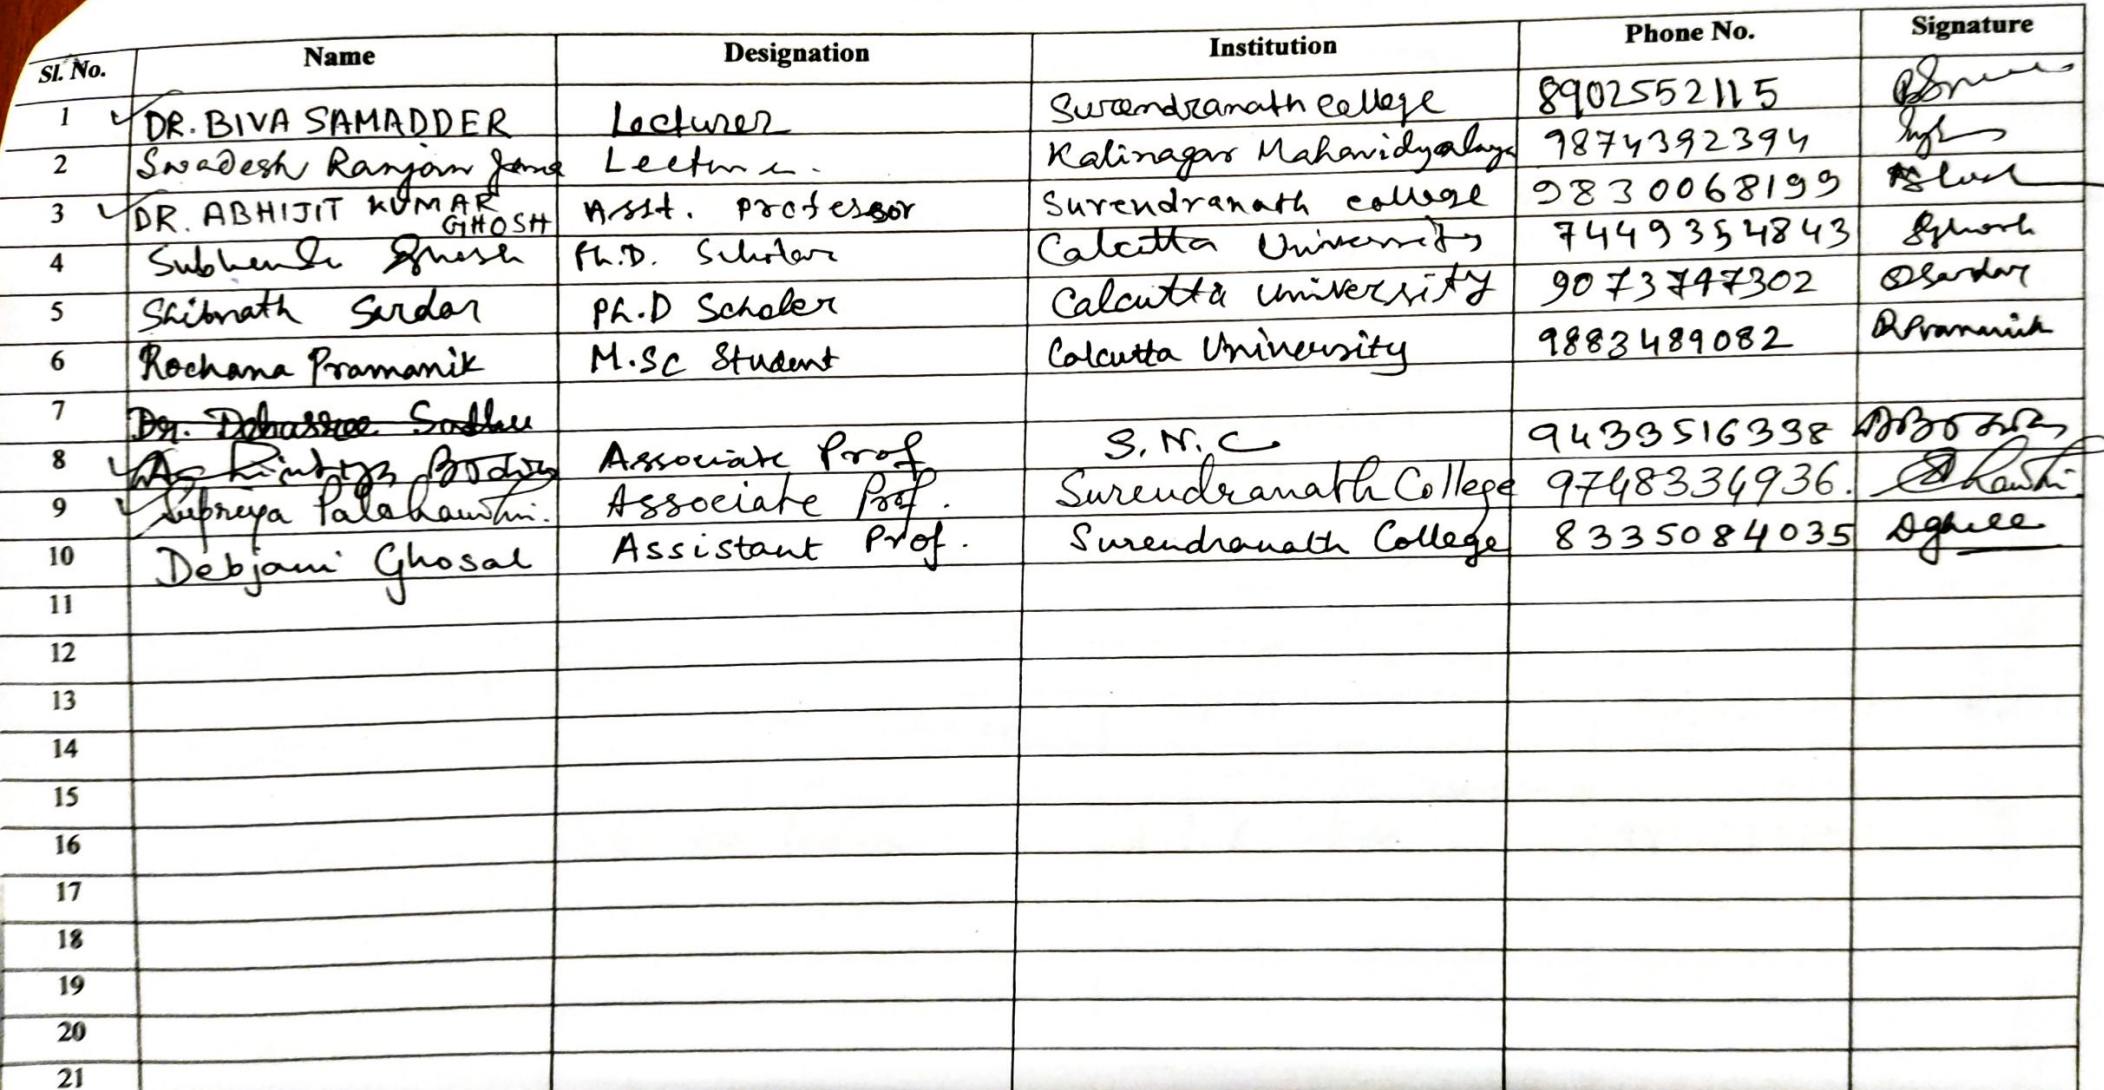 Sl. No. Name Designation Institution Phone No. Signature
1 DR. BIVA SAMADDER Lecturer Surendranath college 8902552115
2 Swadesh Ranjan Jana Lecturer. Kalinagar Mahavidyalaya 9874392394
3 DR. ABHIJIT KUMAR GHOSH Asst. Professor Surendranath college 9830068199
4 Subhendu Ghosh Ph.D. Scholar Calcutta University 7449354843 SGhosh
5 Shibnath Sardar Ph.D Scholer Calcutta University 9073747302 SSardar
6 Rochana Pramanik M.Sc Student Calcutta University 9883489082 RPramanik
7 Dr. Debasree Sadhu
8 Associate Prof S.N.C 9433516338
9 Supriya Associate Prof. Surendranath College 9748334936.
10 Debjani Ghosal Assistant Prof. Surendranath College 8335084035
11
12
13
14
15
16
17
18
19
20
21